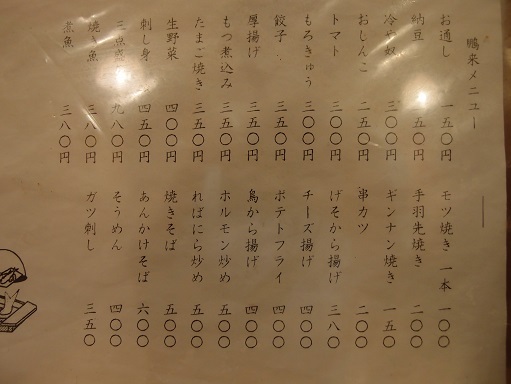 鵬来メニュー
お通し 一五〇円
納豆 一五〇円
冷や奴 三〇〇円
おしんこ 二五〇円
トマト 三〇〇円
もろきゅう 三〇〇円
餃子 三五〇円
厚揚げ 三五〇円
もつ煮込み 三五〇円
たまご焼き 三五〇円
生野菜 四〇〇円
刺し身 四五〇円
三点 九八〇円
焼き魚 三八〇円
煮魚 三八〇円
モツ焼き 一本 一〇〇
手羽先焼き 二〇〇
ギンナン焼き 一五〇
串カツ 二〇〇
げそから揚げ 三八〇
チーズ揚げ 四〇〇
ポテトフライ 四〇〇
鳥から揚げ 四〇〇
ホルモン炒め 五〇〇
ればにら炒め 五〇〇
焼きそば 五〇〇
あんかけそば 六〇〇
そうめん 四〇〇
ガツ刺し 三五〇